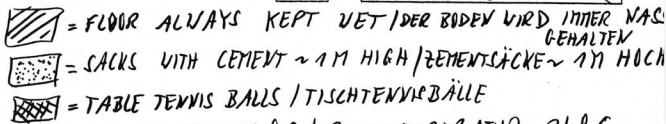 = FLOOR ALWAYS KEPT WET / DER BODEN WIRD IMMER NAS
GEHALTEN
= SACKS WITH CEMENT ~ 1M HIGH / ZEMENTSÄCKE ~ 1M HOCH
= TABLE TENNIS BALLS / TISCHTENNISBÄLLE